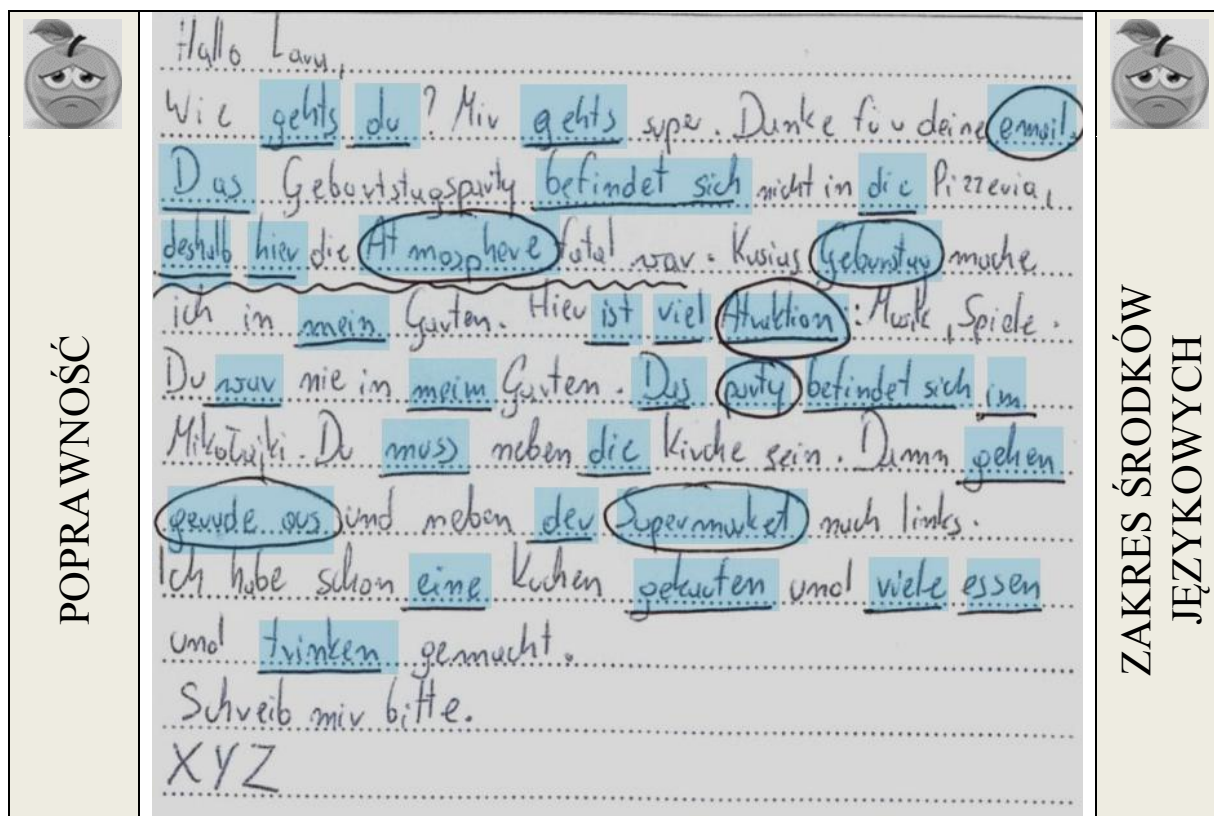 POPRAWNOŚĆ
Hallo Lara,
Wie gehts du? Mir gehts super. Danke für deine email.
Das Geburtstagsparty befindet sich nicht in die Pizzeria,
deshalb hier die Atmosphere fatal war. Kasias Geburstag mache
ich in mein Garten. Hier ist viel Atraktion: Musik, Spiele.
Du war nie in meim Garten. Das party befindet sich im
Mikołajki. Du muss neben die Kirche sein. Dann gehen
gerade aus und neben der Supermarket nach links.
Ich habe schon eine Kuchen gekauten und viele essen
und trinken gemacht.
Schreib mir bitte.
XYZ
ZAKRES ŚRODKÓW
JĘZYKOWYCH